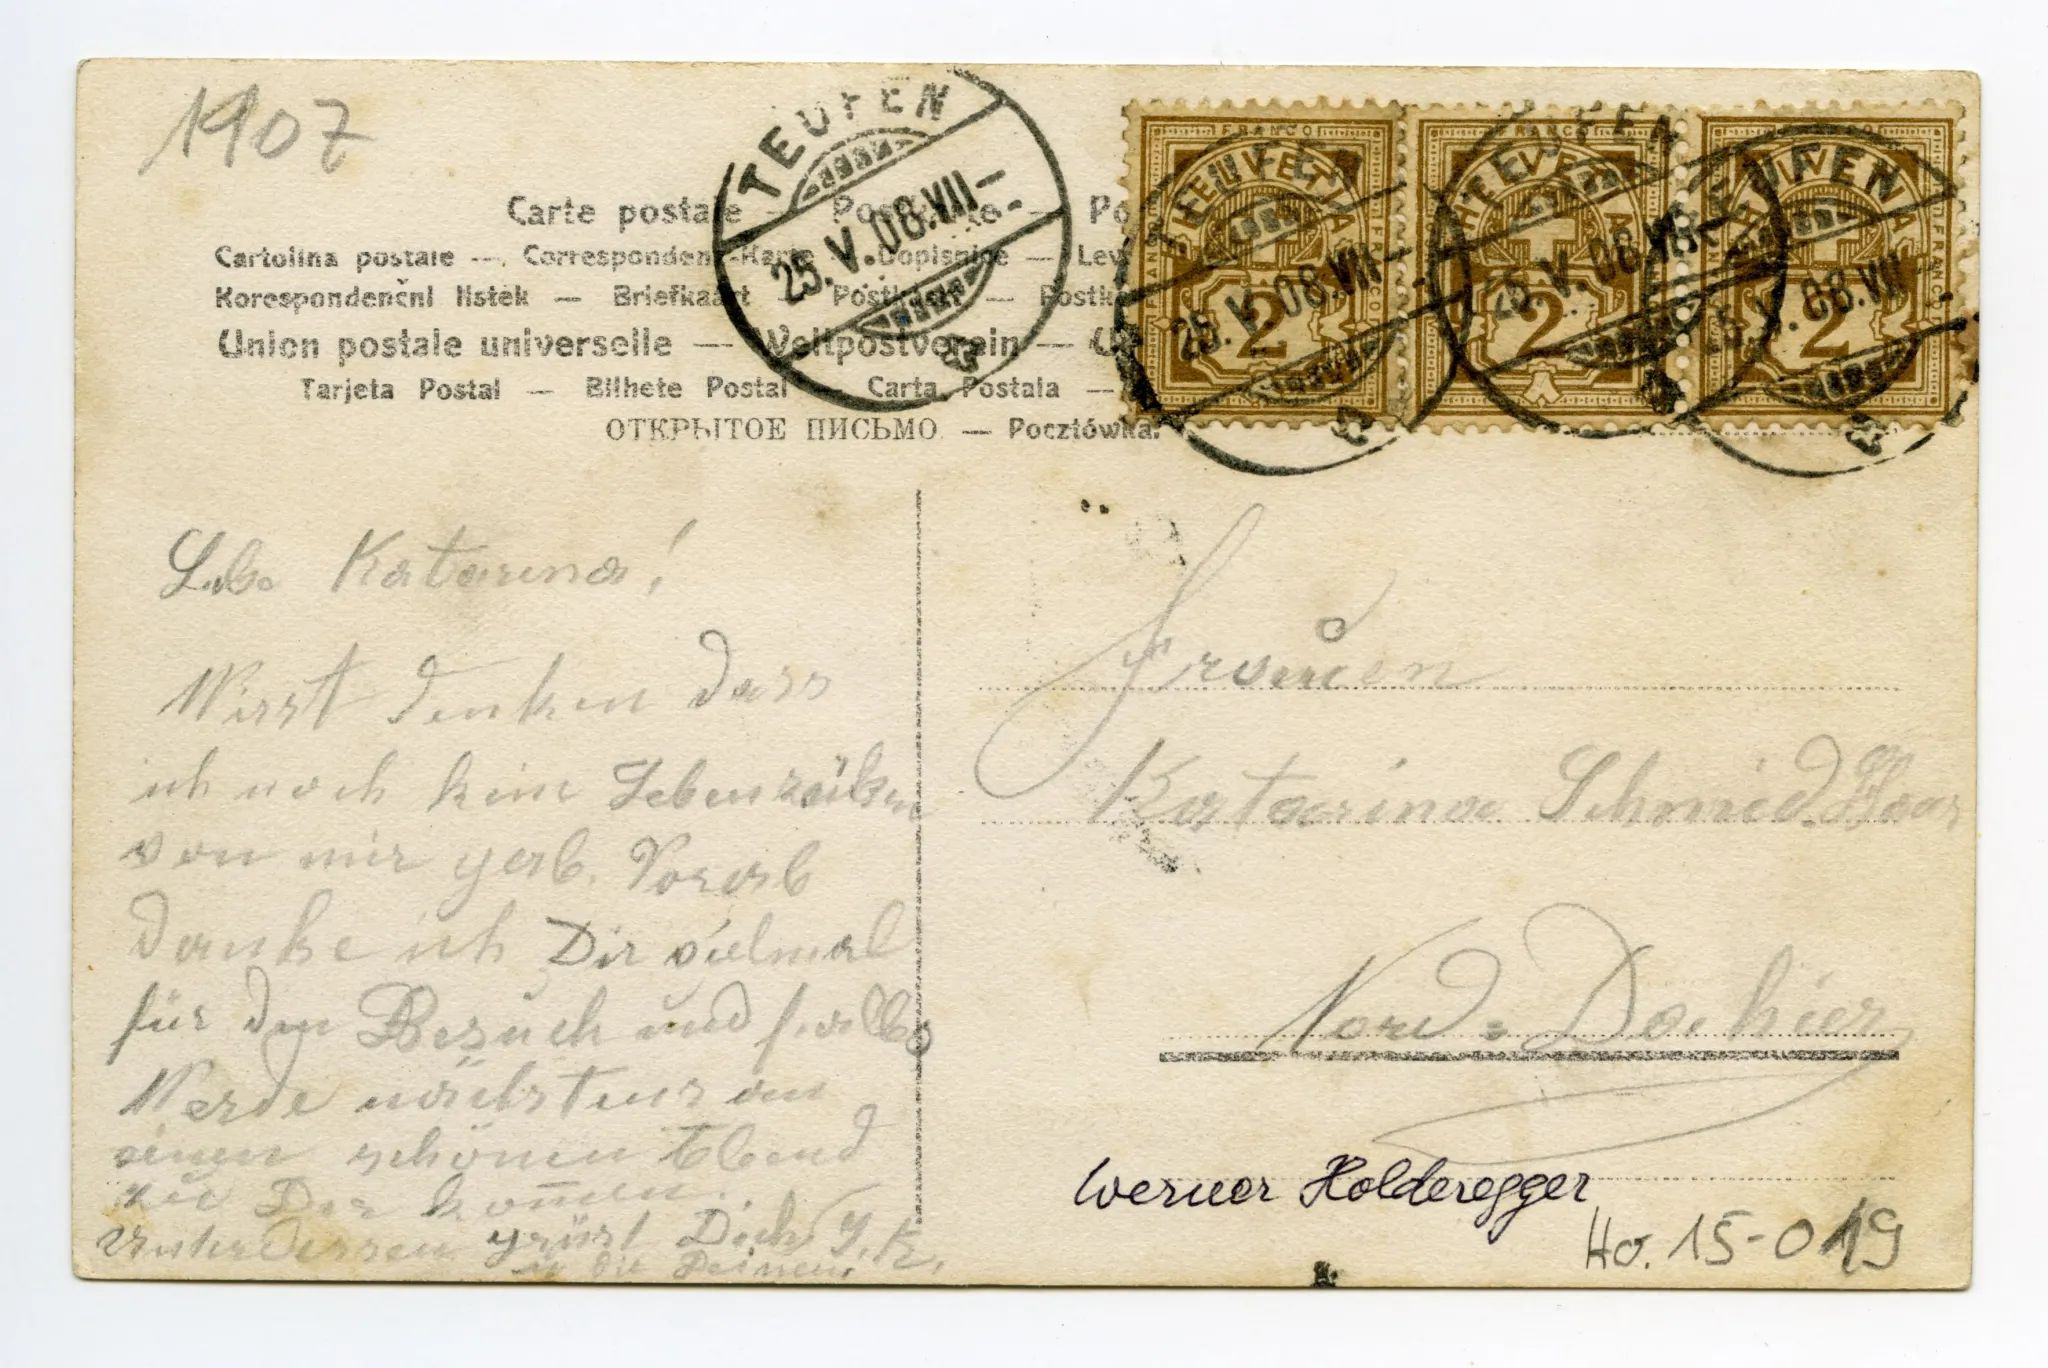 1907
TEUFEN
25.V.08.VII-
Carte postale — Postkarte — Po
Cartolina postale — Correspondenz-Karte — Dopisnice — Lev
Korespondenční listek — Briefkaart — Postkort — Postk
Union postale universelle — Weltpostverein — U
Tarjeta Postal — Bilhete Postal — Carta Postala —
ОТКРЫТОЕ ПИСЬМО — Pocztówka.
FRANCO FRANCO
HELVETIA HELVETIA HELVETIA
2 2 2
TEUFEN TEUFEN TEUFEN
25.V.08.VII- 25.V.08.VII- 25.V.08.VII-
Lb. Katarina!
Wirst denken dass
ich noch kein Lebenzeichen
von mir gab. Vorab
danke ich Dir vielmal
für den Besuch und falls
Werde nächstens an
einen schönen Abend
zu Dir kom̅en.
Unterdessen grüsst Dich J. K.
u die Deinen.
Frauen
Katarina Schmid. Haar
Nord-
Werner Holderegger
Ho. 15-019